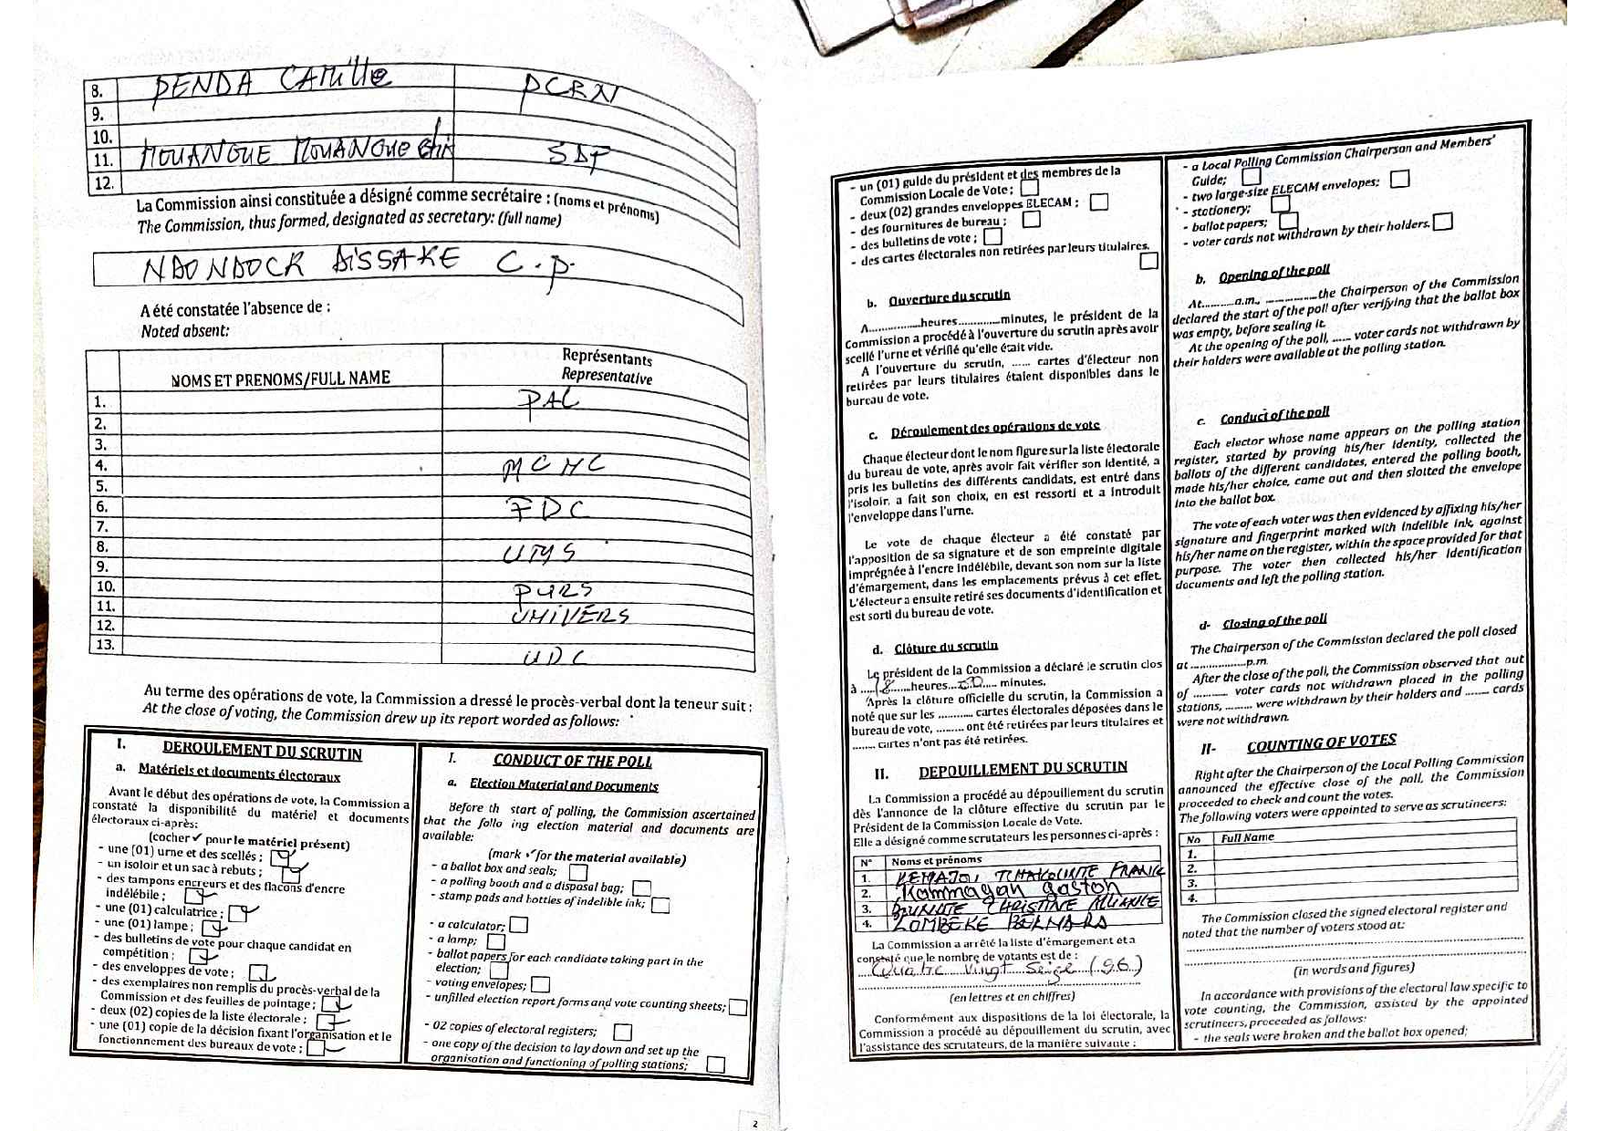 8. PENDA CAMille PCRN
9.
10.
11. MOUANGUE MOUANGUE SDF
12.
La Commission ainsi constituée a désigné comme secrétaire : (noms et prénoms)
The Commission, thus formed, designated as secretary: (full name)
NDONDOCK DISSAKE C.P.
A été constatée l'absence de :
Noted absent:
NOMS ET PRENOMS/FULL NAME
Représentants
Representative
1. PAL
2.
3.
4. MCNC
5.
6. FDC
7.
8. UMS
9.
10. PURS
11. UNIVERS
12.
13. UDC
Au terme des opérations de vote, la Commission a dressé le procès-verbal dont la teneur suit :
At the close of voting, the Commission drew up its report worded as follows:
I. DEROULEMENT DU SCRUTIN
a. Matériels et documents électoraux
Avant le début des opérations de vote, la Commission a
constaté la disponibilité du matériel et documents
électoraux ci-après:
(cocher ✓ pour le matériel présent)
- une (01) urne et des scellés ;
- un isoloir et un sac à rebuts ;
- des tampons encreurs et des flacons d'encre
indélébile ;
- une (01) calculatrice ;
- une (01) lampe ;
- des bulletins de vote pour chaque candidat en
compétition ;
- des enveloppes de vote ;
- des exemplaires non remplis du procès-verbal de la
Commission et des feuilles de pointage ;
- deux (02) copies de la liste électorale ;
- une (01) copie de la décision fixant l'organisation et le
fonctionnement des bureaux de vote ;
I. CONDUCT OF THE POLL
a. Election Material and Documents
Before th start of polling, the Commission ascertained
that the follo ing election material and documents are
available:
(mark ✓ for the material available)
- a ballot box and seals;
- a polling booth and a disposal bag;
- stamp pads and bottles of indelible ink;
- a calculator;
- a lamp;
- ballot papers for each candidate taking part in the
election;
- voting envelopes;
- unfilled election report forms and vote counting sheets;
- 02 copies of electoral registers;
- one copy of the decision to lay down and set up the
organisation and functioning of polling stations;
2
- un (01) guide du président et des membres de la
Commission Locale de Vote ;
- deux (02) grandes enveloppes ELECAM ;
- des fournitures de bureau ;
- des bulletins de vote ;
- des cartes électorales non retirées par leurs titulaires.
b. Ouverture du scrutin
A...............heures.............minutes, le président de la
Commission a procédé à l'ouverture du scrutin après avoir
scellé l'urne et vérifié qu'elle était vide.
A l'ouverture du scrutin, ...... cartes d'électeur non
retirées par leurs titulaires étaient disponibles dans le
bureau de vote.
c. Déroulement des opérations de vote
Chaque électeur dont le nom figure sur la liste électorale
du bureau de vote, après avoir fait vérifier son identité, a
pris les bulletins des différents candidats, est entré dans
l'isoloir, a fait son choix, en est ressorti et a introduit
l'enveloppe dans l'urne.
Le vote de chaque électeur a été constaté par
l'apposition de sa signature et de son empreinte digitale
imprégnée à l'encre indélébile, devant son nom sur la liste
d'émargement, dans les emplacements prévus à cet effet.
L'électeur a ensuite retiré ses documents d'identification et
est sorti du bureau de vote.
d. Clôture du scrutin
Le président de la Commission a déclaré le scrutin clos
à ....18......heures.......... minutes.
Après la clôture officielle du scrutin, la Commission a
noté que sur les ........... cartes électorales déposées dans le
bureau de vote, ......... ont été retirées par leurs titulaires et
........ cartes n'ont pas été retirées.
II. DEPOUILLEMENT DU SCRUTIN
La Commission a procédé au dépouillement du scrutin
dès l'annonce de la clôture effective du scrutin par le
Président de la Commission Locale de Vote.
Elle a désigné comme scrutateurs les personnes ci-après :
N° Noms et prénoms
1. TCHAKOUNTE FRANK
2. Kammagan gaston
3. CHRISTINE
4. LOMBEKE
La Commission a arrêté la liste d'émargement et a
constaté que le nombre de votants est de :
Quatre Vingt Seize (96)
(en lettres et en chiffres)
Conformément aux dispositions de la loi électorale, la
Commission a procédé au dépouillement du scrutin, avec
l'assistance des scrutateurs, de la manière suivante :
- a Local Polling Commission Chairperson and Members'
Guide;
- two large-size ELECAM envelopes;
- stationery;
- ballot papers;
- voter cards not withdrawn by their holders.
b. Opening of the poll
At..........a.m., ................the Chairperson of the Commission
declared the start of the poll after verifying that the ballot box
was empty, before sealing it.
At the opening of the poll, ...... voter cards not withdrawn by
their holders were available at the polling station.
c. Conduct of the poll
Each elector whose name appears on the polling station
register, started by proving his/her identity, collected the
ballots of the different candidates, entered the polling booth,
made his/her choice, came out and then slotted the envelope
into the ballot box.
The vote of each voter was then evidenced by affixing his/her
signature and fingerprint marked with indelible ink, against
his/her name on the register, within the space provided for that
purpose. The voter then collected his/her identification
documents and left the polling station.
d- Closing of the poll
The Chairperson of the Commission declared the poll closed
at ..................p.m.
After the close of the poll, the Commission observed that out
of ........... voter cards not withdrawn placed in the polling
stations, ......... were withdrawn by their holders and ........ cards
were not withdrawn.
II- COUNTING OF VOTES
Right after the Chairperson of the Local Polling Commission
announced the effective close of the poll, the Commission
proceeded to check and count the votes.
The following voters were appointed to serve as scrutineers:
No Full Name
1.
2.
3.
4.
The Commission closed the signed electoral register and
noted that the number of voters stood at:
(in words and figures)
In accordance with provisions of the electoral law specific to
vote counting, the Commission, assisted by the appointed
scrutineers, proceeded as follows:
- the seals were broken and the ballot box opened;